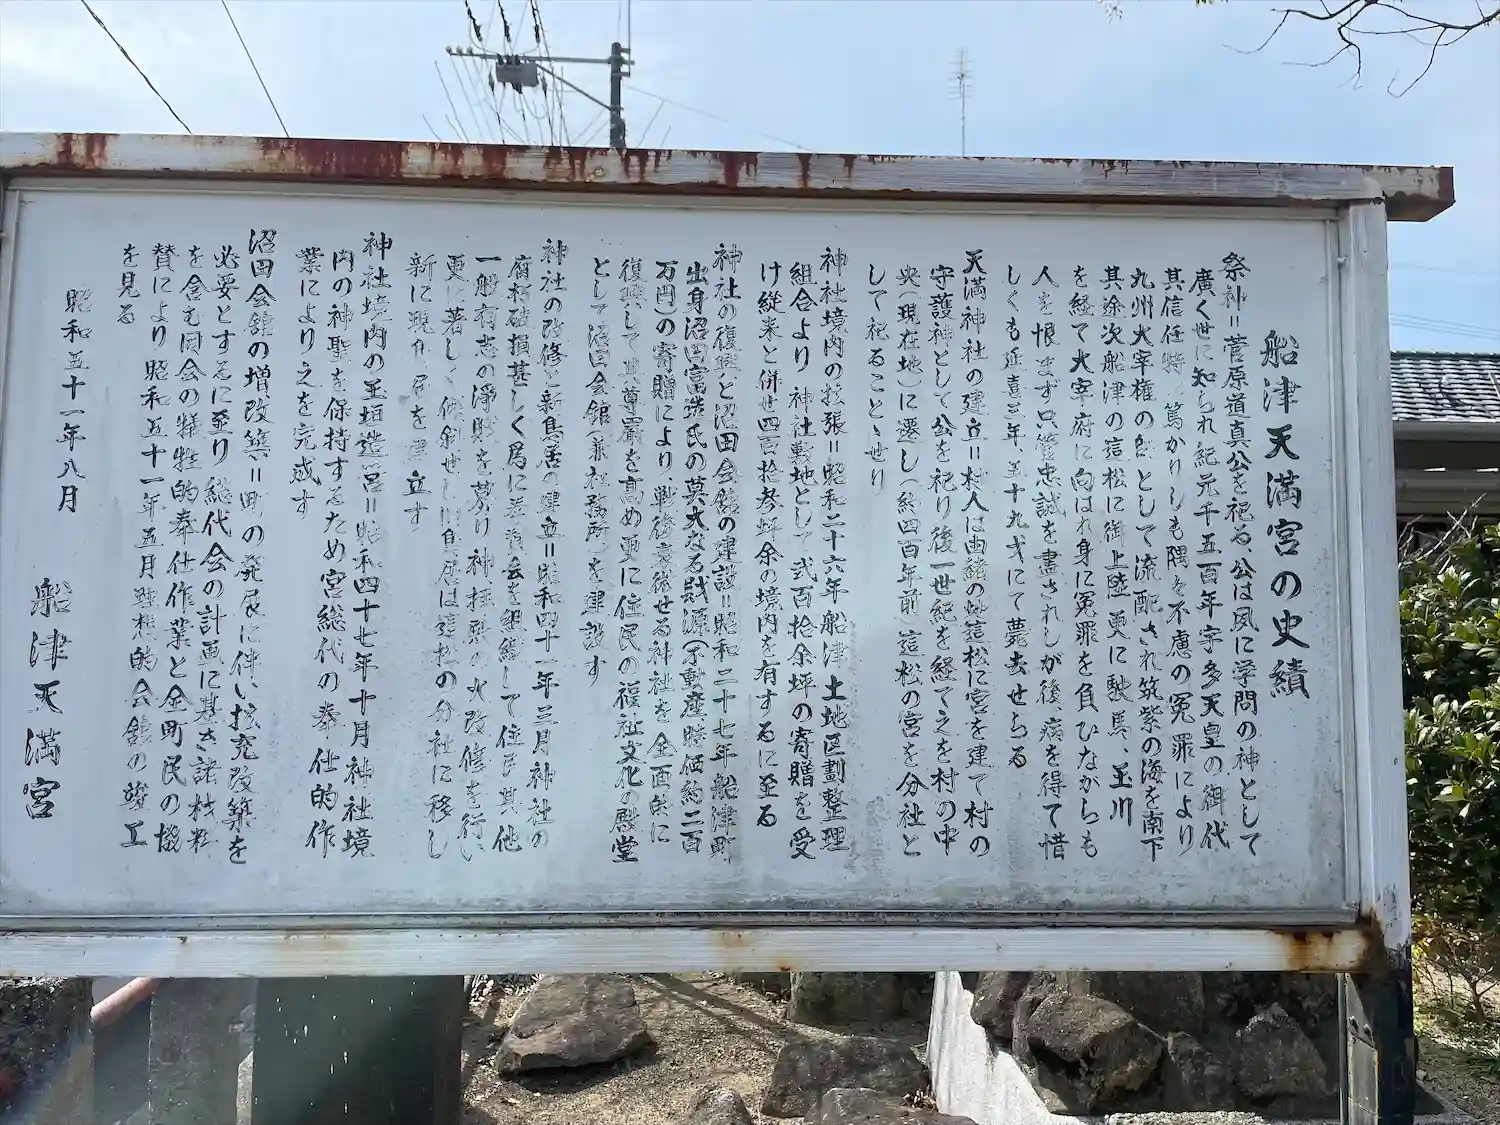 船津天満宮の史績
祭神＝菅原道真公を祀る、公は夙に学問の神として
廣く世に知られ紀元千五百年宇多天皇の御代
其信任特 篤かりしも隅々不慮の冤罪により
九州大宰権の として流配され筑紫の海を南下
其途次船津の這松に御上陸更に駛馬、玉川
を経て大宰府に向はれ身に冤罪を負ひながらも
人を恨まず只管忠誠を盡されしが後病を得て惜
しくも延喜三年、五十九才にて薨去せらる
天満神社の建立＝村人は由緒の 這松に宮を建て村の
守護神として公を祀り後一世紀を経て之を村の中
央（現在地）に遷し（約四百年前）這松の宮を分社と
して祀ることゝせり
神社境内の拡張＝昭和二十六年船津土地区劃整理
組合より神社敷地として弐百拾余坪の寄贈を受
け従来と併せ四百拾参坪余の境内を有するに至る
神社の復興と沼田会館の建設＝昭和二十七年船津町
出身沼田富造氏の莫大なる財源（不動産時価約二百
万円）の寄贈により戦後衰微せる神社を全面的に
復興して其尊嚴を高め更に住民の福祉文化の殿堂
として沼田会館（兼社務所）を建設す
神社の改修と新鳥居の建立＝昭和四十一年三月神社の
腐朽破損甚しく為に 会を組織して住民其他
一般有志の淨財を募り神社 の大改修を行い
更に著しく傾斜せし旧鳥居は這松の分社に移し
新に現鳥居を建立す
神社境内の玉垣造営＝昭和四十七年十月神社境
内の神聖を保持するため宮総代の奉仕的作
業により之を完成す
沼田会館の増改築＝町の発展に伴い拡充改築を
必要とするに至り総代会の計画に基き諸材料
を含む同会の犠牲的奉仕作業と全町民の協
賛により昭和五十一年五月 想的会館の竣工
を見る
昭和五十一年八月
船津天満宮